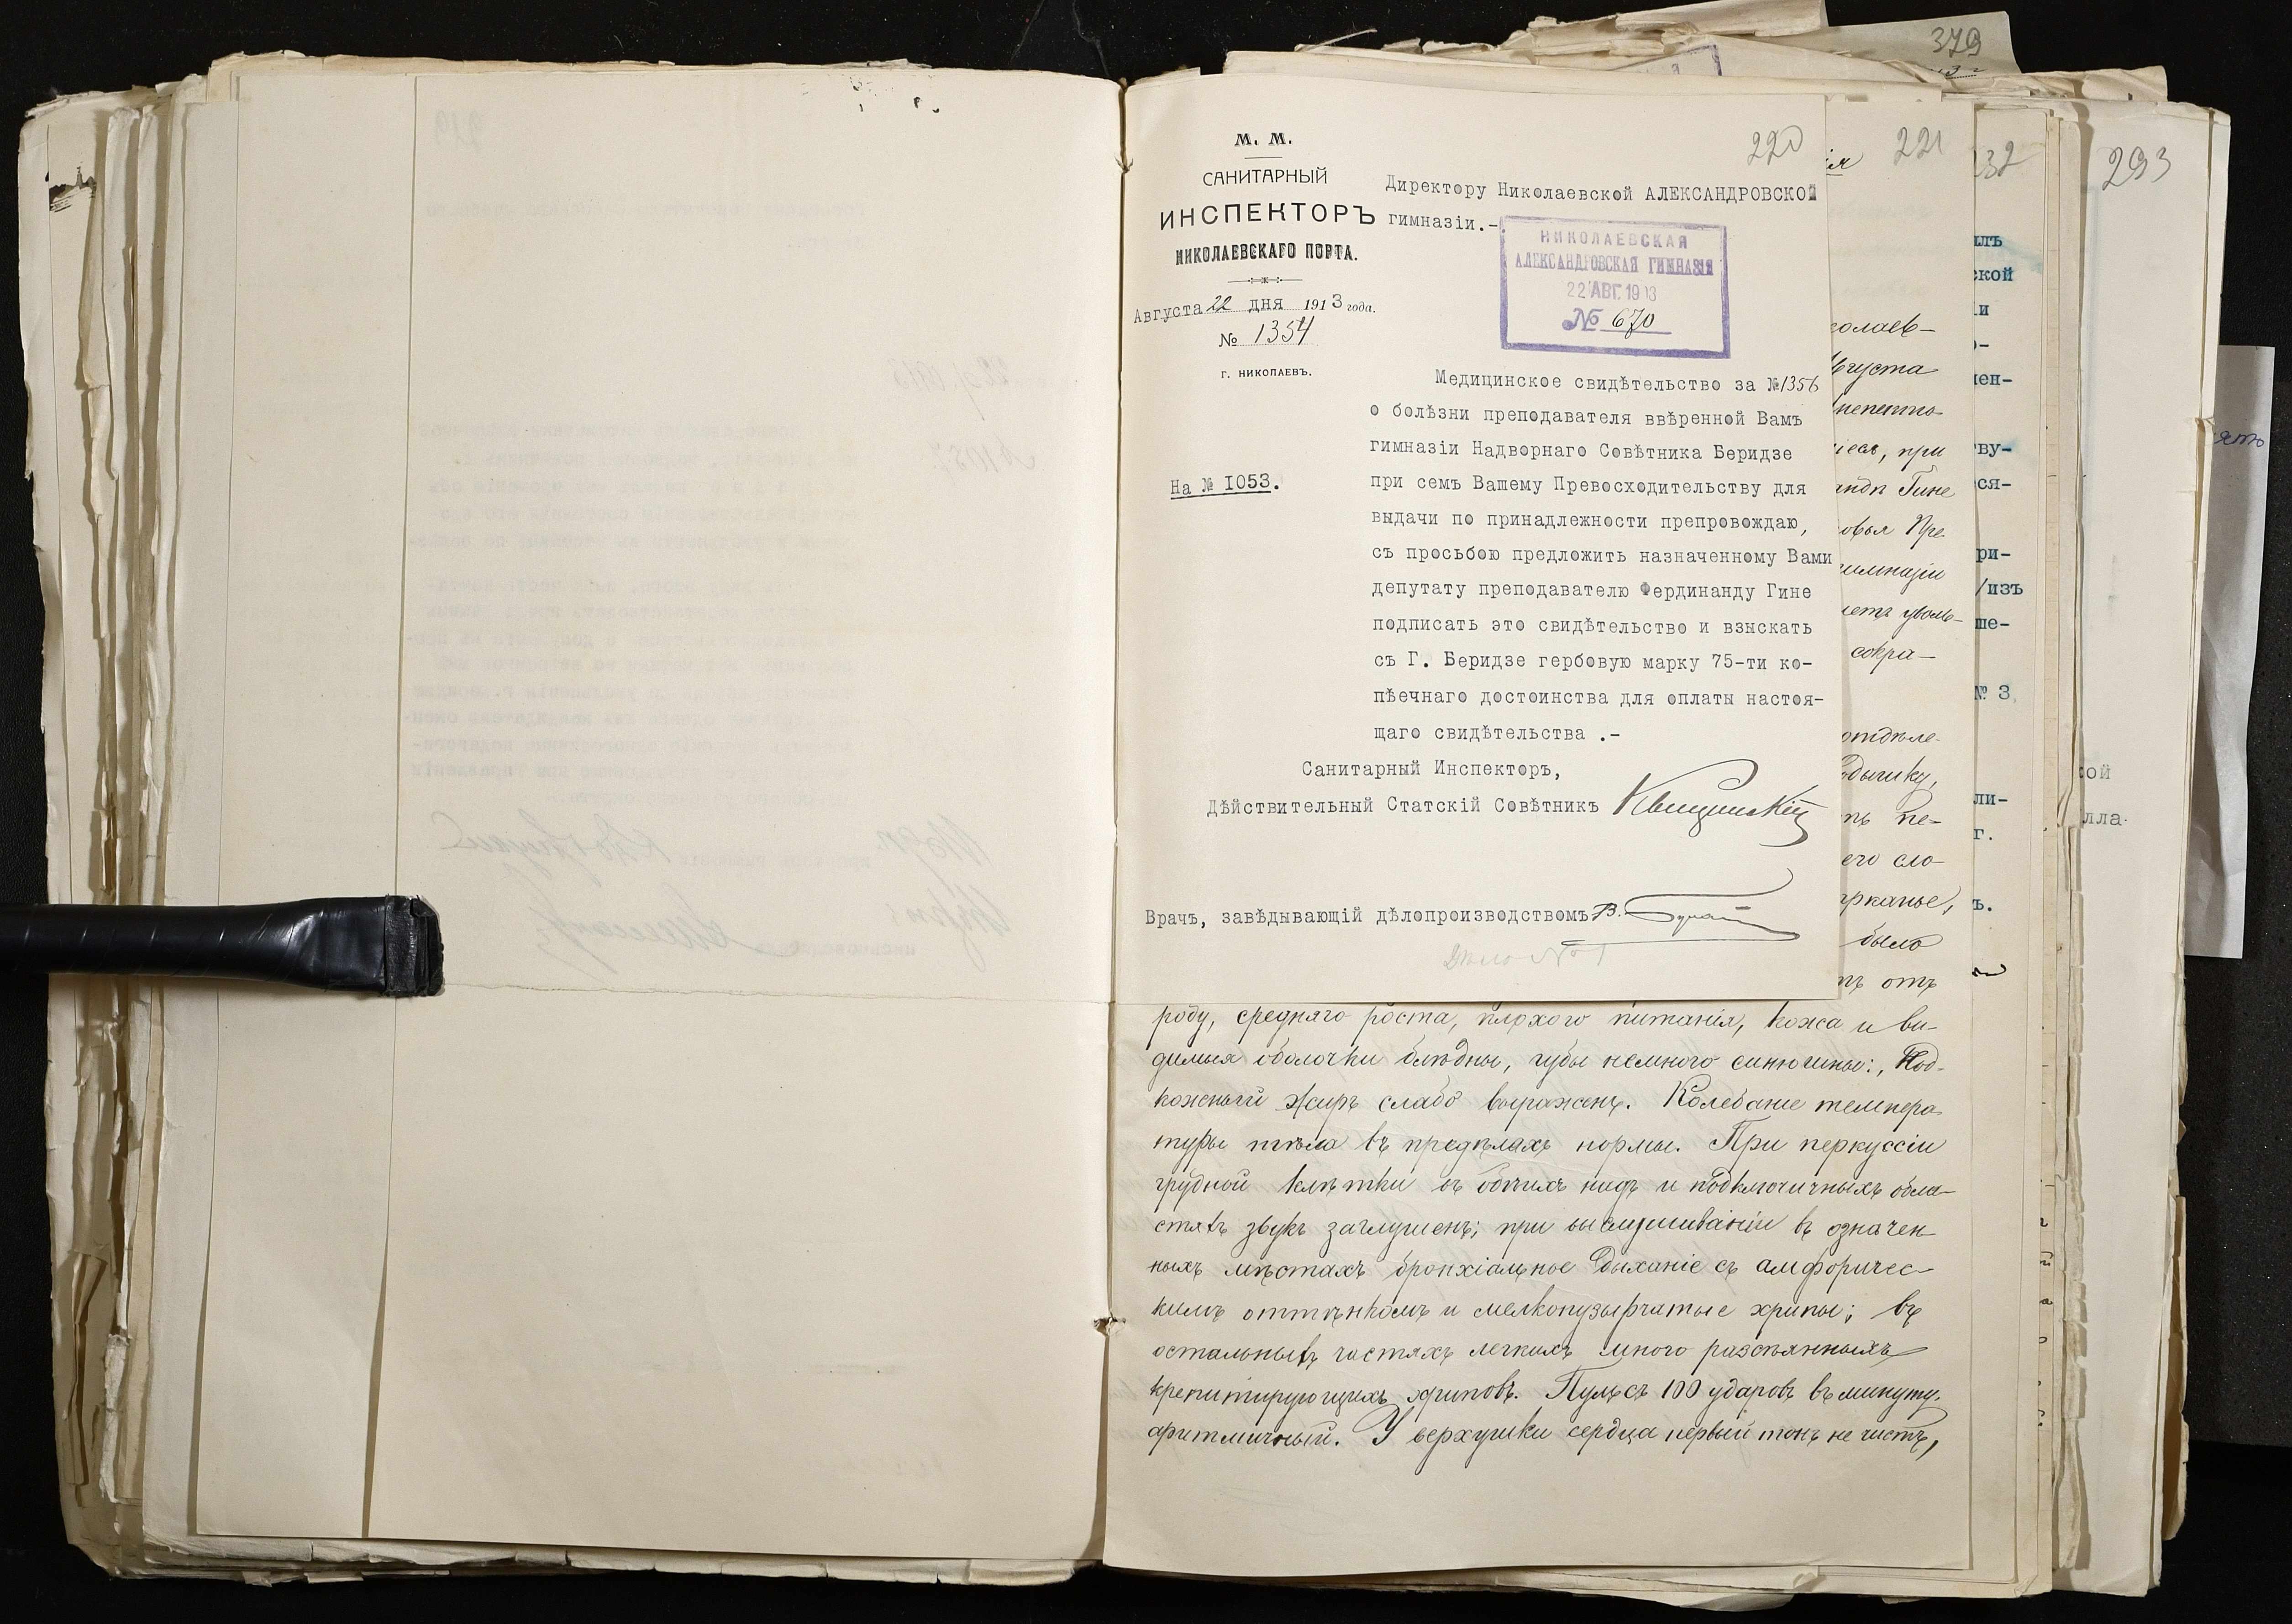 379
220
М. М.
САНИТАРНЫЙ
ИНСПЕКТОРЪ
НИКОЛАЕВСКАГО ПОРТА.
Августа 22 дня 1913 года.
№ 1354
г. НИКОЛАЕВЪ.
На № 1053.
Директору Николаевской АЛЕКСАНДРОВСКОЙ
гимназіи.-
НИКОЛАЕВСКАЯ
АЛЕКСАНДРОВСКАЯ ГИМНАЗІЯ
22 АВГ. 1913
№ 670
Медицинское свидѣтельство за №1356
о болѣзни преподавателя ввѣренной Вамъ
гимназіи Надворнаго Совѣтника Беридзе
при семъ Вашему Превосходительству для
выдачи по принадлежности препровождаю,
съ просьбою предложить назначенному Вами
депутату преподавателю Фердинанду Гине
подписать это свидѣтельство и взыскать
съ Г. Беридзе гербовую марку 75-ти ко-
пѣечнаго достоинства для оплаты настоя-
щаго свидѣтельства .-
Санитарный Инспекторъ,
Дѣйствительный Статскій Совѣтникъ
Врачъ, завѣдывающій дѣлопроизводствомъ В.
Дѣло № 1
221
ія
олаев-
Августа
при
Гине
Пре
гимназіи
уволь-
сокра-
отдѣле-
одышку,
пе-
его сло-
было
отъ
роду, средняго роста, плохого питанія, кожа и ви-
димыя оболочки блѣдны, губы немного синюшны:, Под-
кожный жиръ слабо выраженъ. Колебание темпера
туры тѣла въ предѣлахъ нормы. При перкуссіи
грудной клѣтки въ обѣихъ надъ и подключичныхъ обла-
стяхъ звукъ заглушенъ; при выслушиваніи въ означен-
ныхъ мѣстахъ бронхіальное дыханіе съ амфоричес-
кимъ оттѣнкомъ и мелкопузырчатые хрипы; въ
остальныхъ частяхъ легкихъ много разсѣянныхъ
крепитирующихъ хриповъ. Пульсъ 100 ударовъ въ минуту,
аритмичный. У верхушки сердца первый тонъ не чистъ,
232
илъ
ской
и
ен-
ву-
ся-
ри-
/изъ
ше-
№ 3
ли-
г.
ъ.
293
ой
лла-